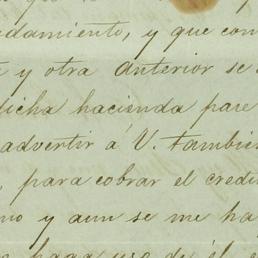 udamiento, y que con
y otra anterior se
dicha hacienda pare
advertir á V. tambie
, para cobrar el credi
mo y aun se me ha
haga uso de él